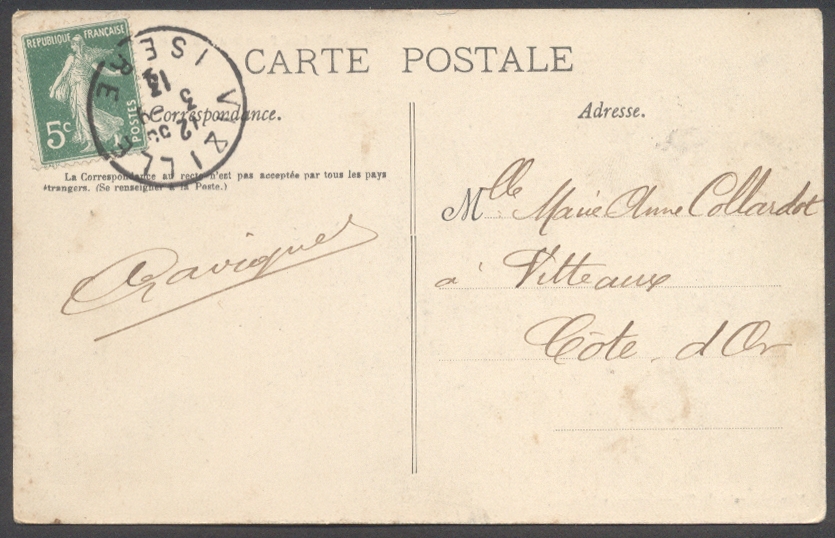 RÉPUBLIQUE FRANÇAISE
5c POSTES
ISERE
13
3
12
CARTE POSTALE
Correspondance.
Adresse.
La Correspondance au recto n'est pas acceptée par tous les pays
étrangers. (Se renseigner à la Poste.)
Mlle Marie Anne Collardot
à Vitteaux
Côte d'Or